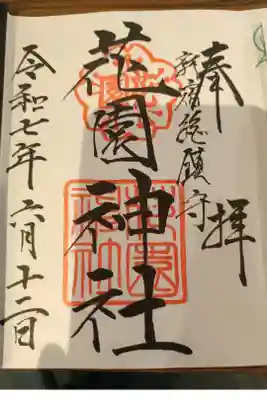 奉拝
新宿総鎮守
花園神社
令和七年六月十二日